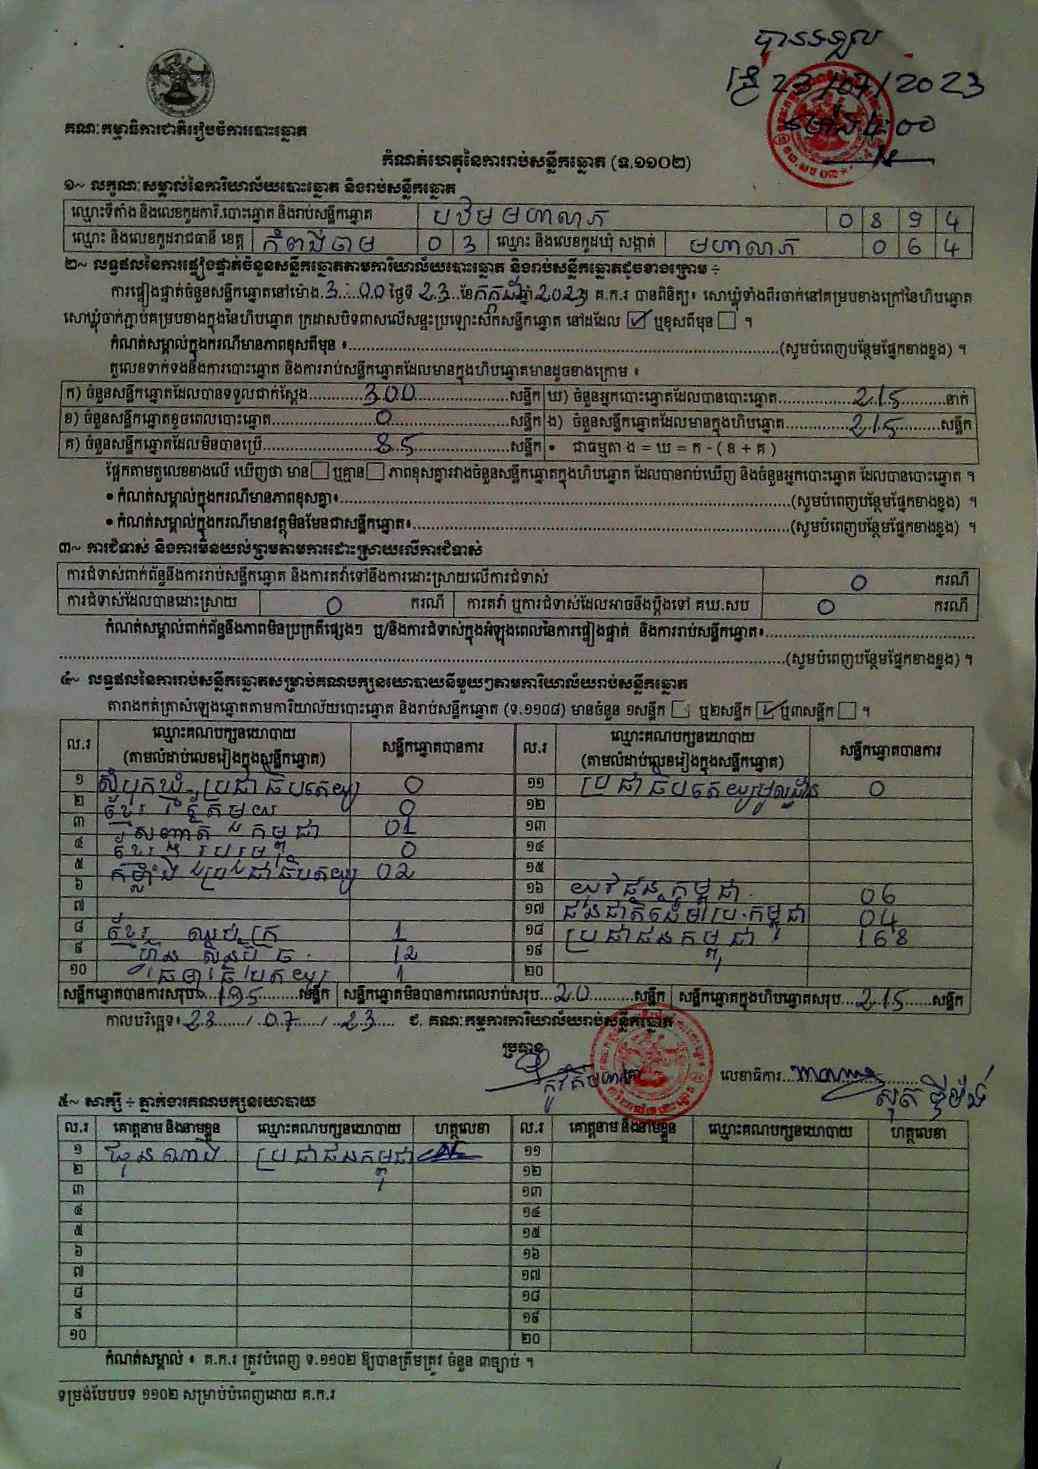 បានទទួល
ថ្ងៃ 23/07/2023
ម៉ោង 4:00
គណៈកម្មាធិការជាតិរៀបចំការបោះឆ្នោត
កំណត់ហេតុនៃការរាប់សន្លឹកឆ្នោត (ទ.១១០២)
១~ លក្ខណៈសម្គាល់នៃការិយាល័យបោះឆ្នោត និងរាប់សន្លឹកឆ្នោត
ឈ្មោះទីតាំង និងលេខកូដការិ.បោះឆ្នោត និងរាប់សន្លឹកឆ្នោត បឋម មហាសាភ 0 8 9 4
ឈ្មោះ និងលេខកូដរាជធានី ខេត្ត កំពង់ចាម 0 3 ឈ្មោះ និងលេខកូដឃុំ សង្កាត់ 0 6 4
២~ លទ្ធផលនៃការផ្ទៀងផ្ទាត់ចំនួនសន្លឹកឆ្នោតតាមការិយាល័យបោះឆ្នោត និងរាប់សន្លឹកឆ្នោតដូចខាងក្រោម ÷
ការផ្ទៀងផ្ទាត់ចំនួនសន្លឹកឆ្នោតនៅម៉ោង 3:00 ថ្ងៃទី 23 ខែ កក្កដា ឆ្នាំ 2023 គ.ក.រ បានពិនិត្យ៖ សោឃ្លុំទាំងពីរចាក់នៅគម្របខាងក្រៅនៃហិបឆ្នោត
សោឃ្លុំចាក់ភ្ជាប់គម្របខាងក្នុងនៃហិបឆ្នោត ក្រដាសបិទពាសលើសន្ទះប្រឡោះស៊កសន្លឹកឆ្នោត នៅដដែល ☑ ឬខុសពីមុន ☐ ។
កំណត់សម្គាល់ក្នុងករណីមានភាពខុសពីមុន ៖..........(សូមបំពេញបន្ថែមផ្នែកខាងខ្នង) ។
តួលេខទាក់ទងនឹងការបោះឆ្នោត និងការរាប់សន្លឹកឆ្នោតដែលមានក្នុងហិបឆ្នោតមានដូចខាងក្រោម ៖
ក) ចំនួនសន្លឹកឆ្នោតដែលបានទទួលជាក់ស្តែង 300 សន្លឹក ឃ) ចំនួនអ្នកបោះឆ្នោតដែលបានបោះឆ្នោត 215 នាក់
ខ) ចំនួនសន្លឹកឆ្នោតខូចពេលបោះឆ្នោត 0 សន្លឹក ង) ចំនួនសន្លឹកឆ្នោតដែលមានក្នុងហិបឆ្នោត 215 សន្លឹក
គ) ចំនួនសន្លឹកឆ្នោតដែលមិនបានប្រើ 85 សន្លឹក • ជាធម្មតា ង = ឃ = ក - ( ខ + គ )
ផ្អែកតាមតួលេខខាងលើ ឃើញថា មាន ☐ ឬគ្មាន ☐ ភាពខុសគ្នារវាងចំនួនសន្លឹកឆ្នោតក្នុងហិបឆ្នោត ដែលបានរាប់ឃើញ និងចំនួនអ្នកបោះឆ្នោត ដែលបានបោះឆ្នោត ។
• កំណត់សម្គាល់ក្នុងករណីមានភាពខុសគ្នា៖..........(សូមបំពេញបន្ថែមផ្នែកខាងខ្នង) ។
• កំណត់សម្គាល់ក្នុងករណីមានវត្ថុមិនមែនជាសន្លឹកឆ្នោត៖..........(សូមបំពេញបន្ថែមផ្នែកខាងខ្នង) ។
៣~ ការជំទាស់ និងការមិនយល់ព្រមតាមការដោះស្រាយលើការជំទាស់
ការជំទាស់ពាក់ព័ន្ធនឹងការរាប់សន្លឹកឆ្នោត និងការតវ៉ាទៅនឹងការដោះស្រាយលើការជំទាស់ 0 ករណី
ការជំទាស់ដែលបានដោះស្រាយ 0 ករណី ការតវ៉ា ឬការជំទាស់ដែលអាចនឹងប្តឹងទៅ គឃ.សប 0 ករណី
កំណត់សម្គាល់ពាក់ព័ន្ធនឹងភាពមិនប្រក្រតីផ្សេងៗ ឬ/និងការជំទាស់ក្នុងអំឡុងពេលនៃការផ្ទៀងផ្ទាត់ និងការរាប់សន្លឹកឆ្នោត៖..........
..........(សូមបំពេញបន្ថែមផ្នែកខាងខ្នង) ។
៤~ លទ្ធផលនៃការរាប់សន្លឹកឆ្នោតសម្រាប់គណបក្សនយោបាយនីមួយៗតាមការិយាល័យរាប់សន្លឹកឆ្នោត
តារាងកត់ត្រាសំឡេងឆ្នោតតាមការិយាល័យបោះឆ្នោត និងរាប់សន្លឹកឆ្នោត (ទ.១១០៨) មានចំនួន ១សន្លឹក ☐ ឬ២សន្លឹក ☑ ឬ៣សន្លឹក ☐ ។
ល.រ ឈ្មោះគណបក្សនយោបាយ (តាមលំដាប់លេខរៀងក្នុងសន្លឹកឆ្នោត) សន្លឹកឆ្នោតបានការ ល.រ ឈ្មោះគណបក្សនយោបាយ (តាមលំដាប់លេខរៀងក្នុងសន្លឹកឆ្នោត) សន្លឹកឆ្នោតបានការ
១ សំបុកឃ្មុំ ប្រជាធិបតេយ្យ 0 ១១ ប្រជាធិបតេយ្យមូលដ្ឋាន 0
២ ខ្មែររួបរួមតែមួយ 0 ១២
៣ សញ្ជាតិកម្ពុជា 01 ១៣
៤ ខ្មែររួបរួម 0 ១៤
៥ កម្លាំងប្រជាធិបតេយ្យ 02 ១៥
៦ ១៦ យុវជនកម្ពុជា 06
៧ ១៧ ជនជាតិដើមប្រ.កម្ពុជា 04
៨ ខ្មែរ ឈប់ក្រ 1 ១៨ ប្រជាជនកម្ពុជា 168
៩ ហ៊្វុនស៊ិនប៉ិច 12 ១៩
១០ ធម្មាធិបតេយ្យ 1 ២០
សន្លឹកឆ្នោតបានការសរុប 195 សន្លឹក សន្លឹកឆ្នោតមិនបានការពេលរាប់សរុប 20 សន្លឹក សន្លឹកឆ្នោតក្នុងហិបឆ្នោតសរុប 215 សន្លឹក
កាលបរិច្ឆេទ៖ 23 / 07 / 23 ជ. គណៈកម្មការការិយាល័យរាប់សន្លឹកឆ្នោត
ប្រធាន
លេខាធិការ
៥~ សាក្សី ÷ ភ្នាក់ងារគណបក្សនយោបាយ
ល.រ គោត្តនាម និងនាមខ្លួន ឈ្មោះគណបក្សនយោបាយ ហត្ថលេខា ល.រ គោត្តនាម និងនាមខ្លួន ឈ្មោះគណបក្សនយោបាយ ហត្ថលេខា
១ ប្រជាជនកម្ពុជា ១១
២ ១២
៣ ១៣
៤ ១៤
៥ ១៥
៦ ១៦
៧ ១៧
៨ ១៨
៩ ១៩
១០ ២០
កំណត់សម្គាល់ ៖ គ.ក.រ ត្រូវបំពេញ ទ.១១០២ ឱ្យបានត្រឹមត្រូវ ចំនួន ៣ច្បាប់ ។
ទម្រង់បែបបទ ១១០២ សម្រាប់បំពេញដោយ គ.ក.រ